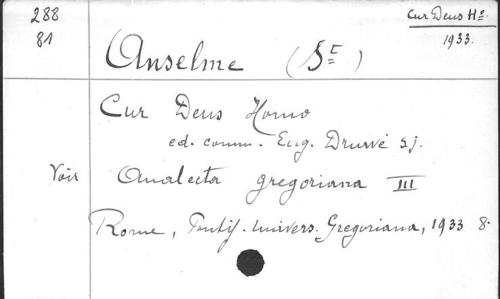 288
81
Cur Deus Ho.
1933.
Anselme (St)
Cur Deus Homo
ed. comm. Eug. Druwé s.j.
Voir Analecta gregoriana III
Rome, Pontif. Univers. Gregoriana, 1933 8°